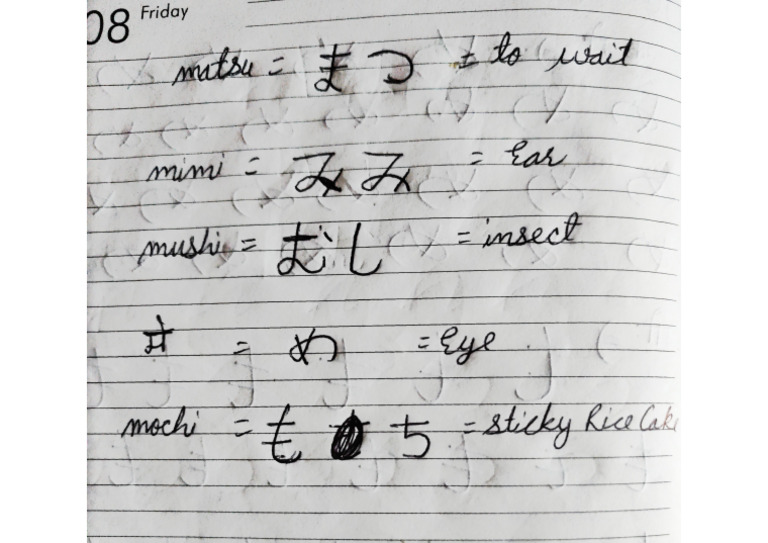 08 Friday
matsu = まつ = to wait
mimi = みみ = Ear
mushi = むし = insect
= め = Eye
mochi = も ち = sticky Rice Cake